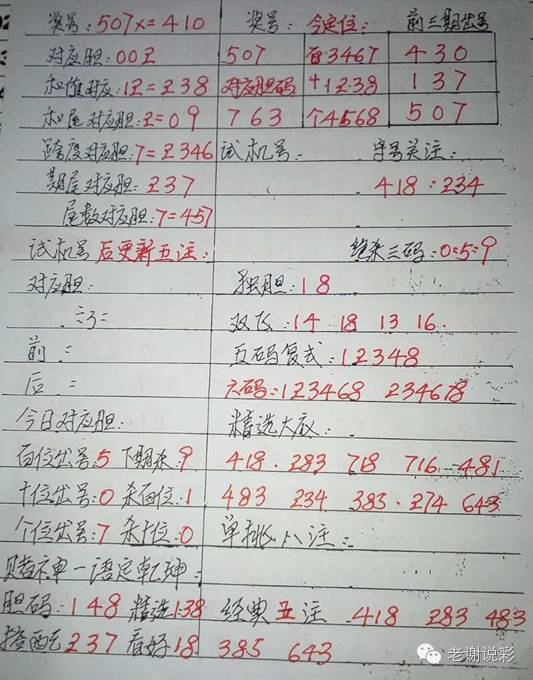 奖号:507x=410 奖号: 今定位: 前三期出号
对应胆:002 507 百3467 430
和值对应:12=238 对应胆码 十1238 137
和尾对应胆:2=09 763 个4568 507
跨度对应胆:7=2346 试机号: 字号关注:
期尾对应胆:237 418:234
尾数对应胆:7=457
试机号后更新五注: 绝杀三码:0:5:9
对应胆: 独胆:18
双飞:14 18 13 16.
前: 五码复式:12348
后: 六码:123468 234678
今日对应胆: 精选大底:
百位出号:5下期杀:9 418.283 718 716 481
十位出号:0杀百位:1 483 234 383.274 643
个位出号:7杀十位:0 单挑八注:
赌神一语定乾坤:
胆码:148精选138 经典五注 418 283 483
搭配237看好18 385 643
老谢说彩